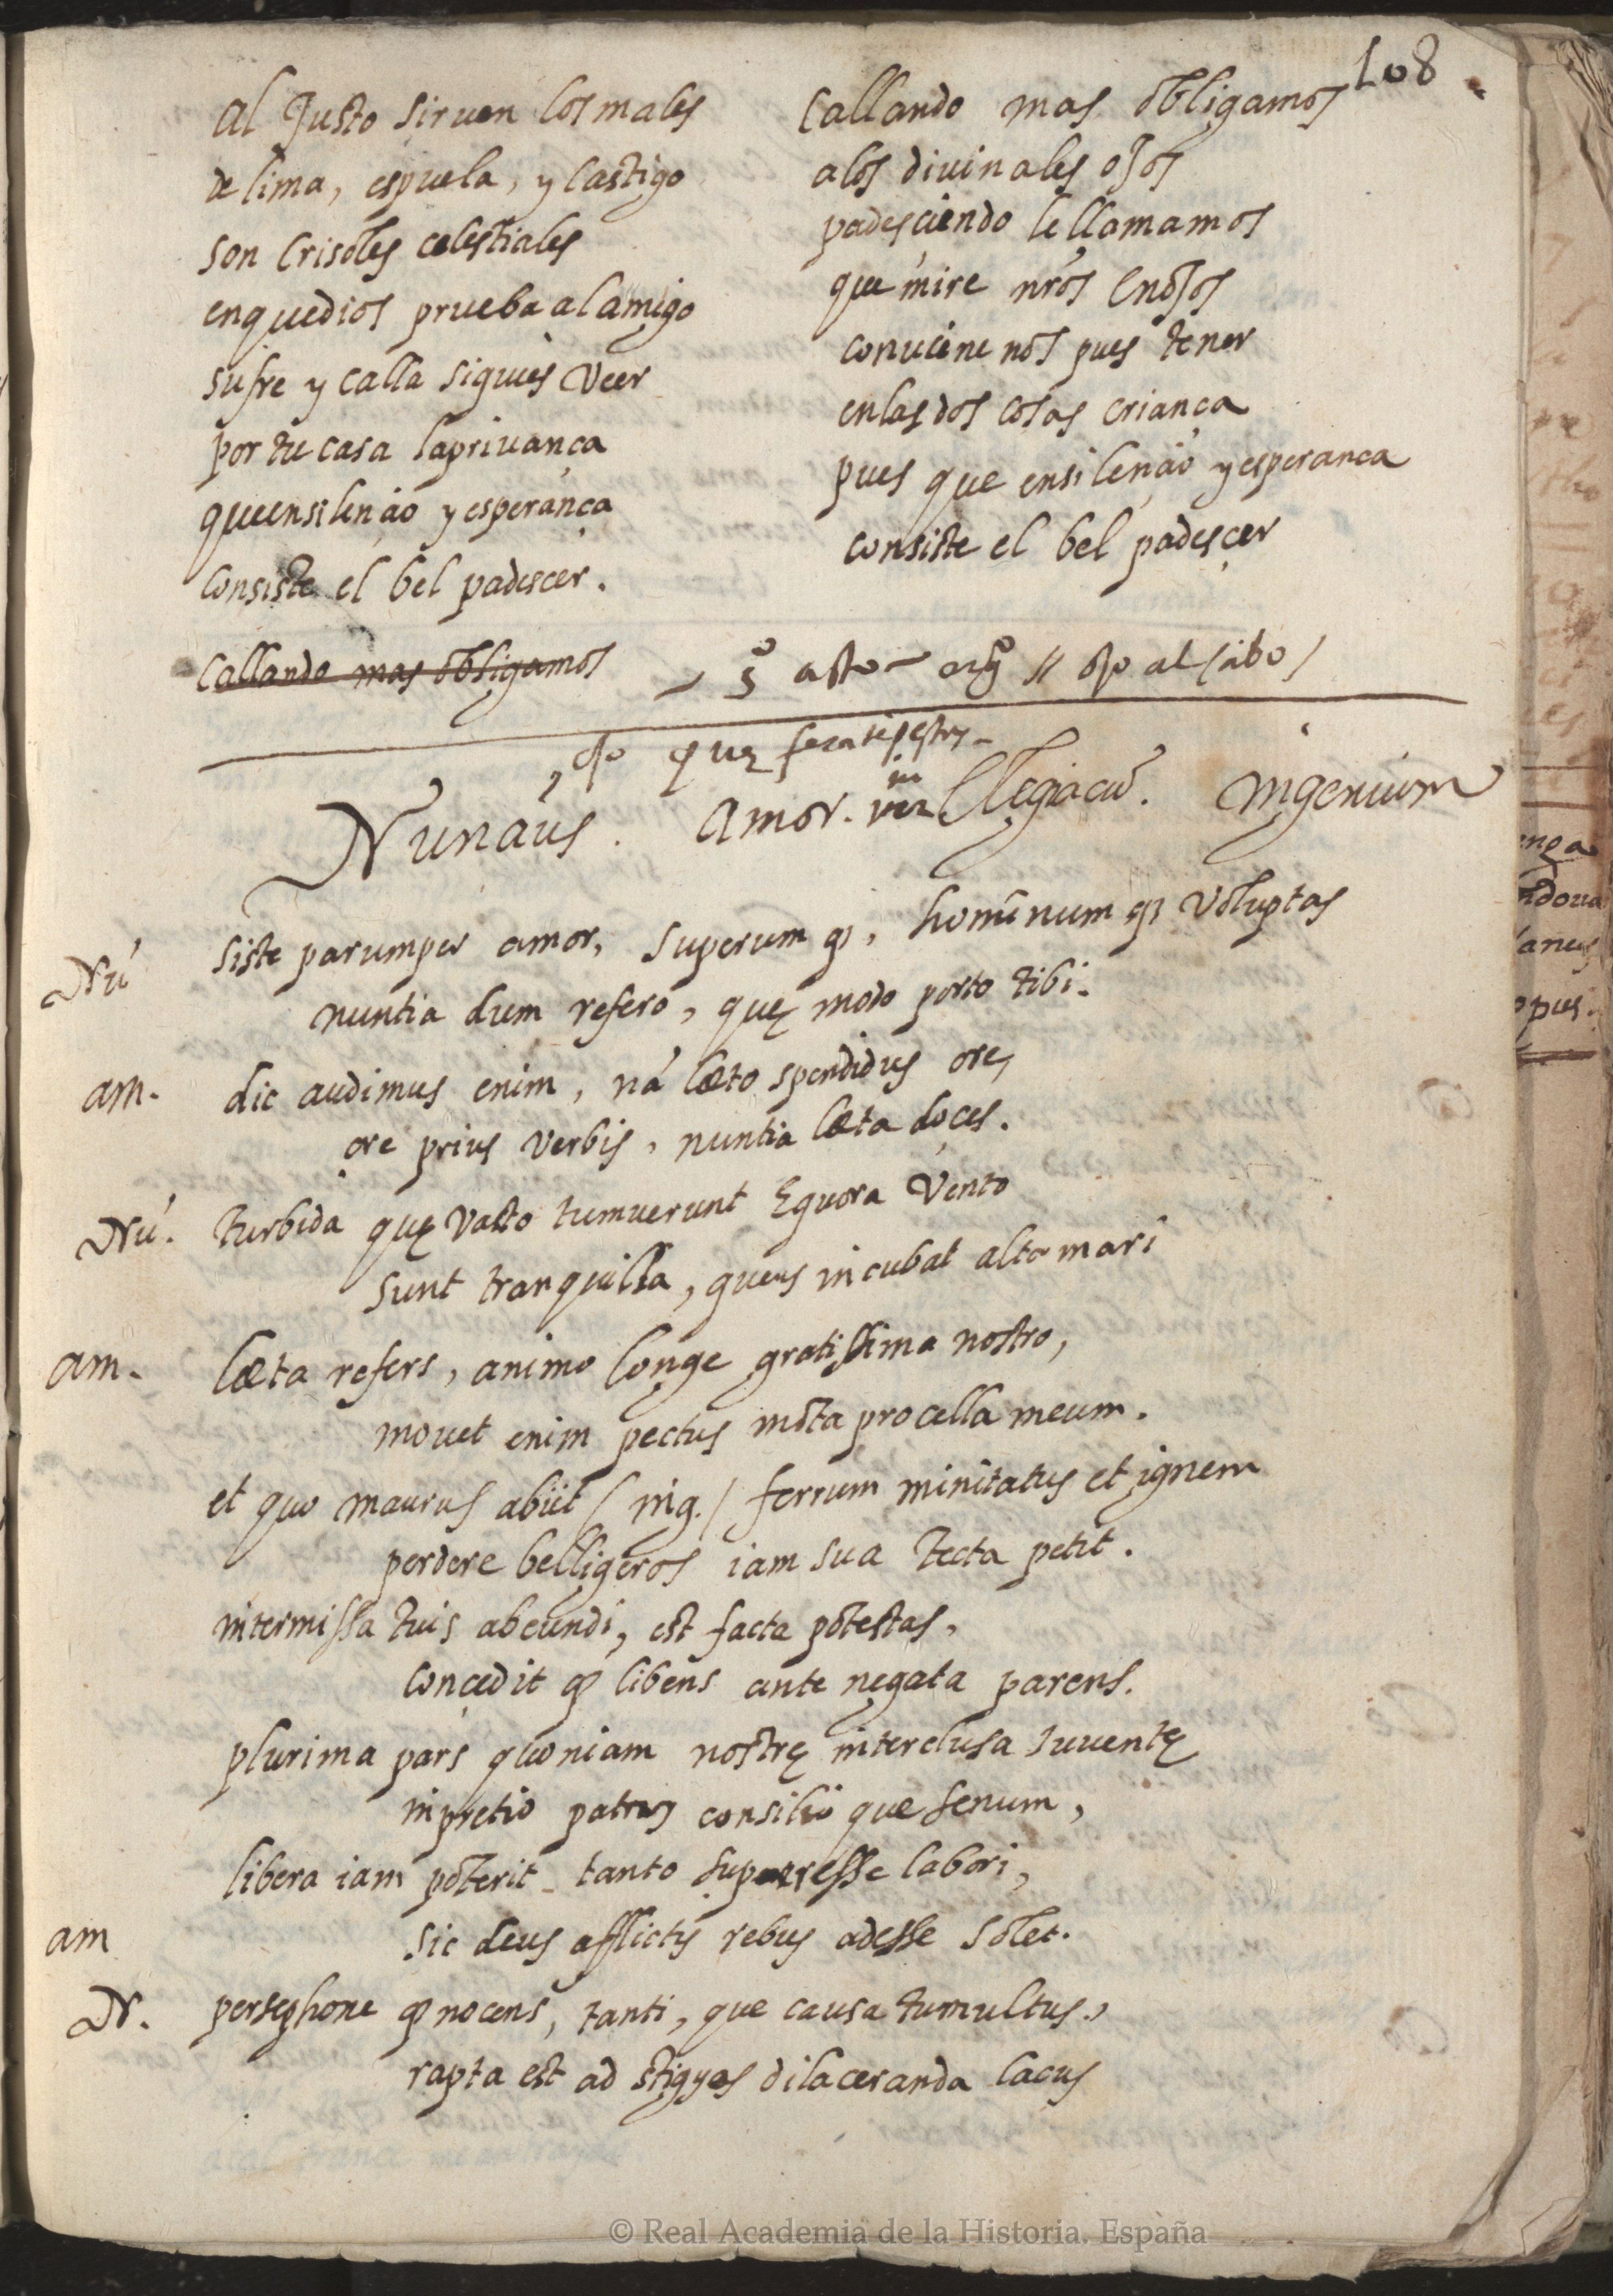 108
al Justo siruen los males
de lima, espuela, y castigo
son crisoles celestiales
enquedios prueba al amigo
sufre y calla siquies veer
por tu casa la priuança
queensilençio y esperança
consiste el bel padescer.
callando mas obligamos
callando mas obligamos
alos diuinales ojos
padesciendo le llamamos
que mire nros enojos
conuiene nos pues tener
enlas dos cosas criança
pues que ensilençio y esperança
consiste el bel padesçer
Nunçius. Amor. in Elegiacū. Ingenium
Nú siste parumper amor, superum q, hominum q voluptas
nuntia dum refero, quę modo porto tibi.
am. dic audimus enim, ná læto spendidus ore,
ore prius verbis, nuntia læta doçes.
Nú. turbida quę vasto tumuerunt Equora vento
sunt tranquilla, queus incubat alto mari
am. læta refers, animo longe gratissima nostro,
mouet enim pectus mota procella meum.
et quo maurus abiit (ing.) ferrum minitatus et ignem
perdere belligeros iam sua tecta petit.
intermissa tuis abeundi, est facta potestas,
conçedit q libens ante negata parens.
plurima pars quoniam nostrę interclusa iuuentę
inpretio patrum consilio que senum,
libera iam poterit tanto superesse labori,
am sic deus afflictis rebus adesse solet.
N. persephone q nocens, tanti, que causa tumultus,
rapta est ad stigyas dilaceranda lacus
enga
opus.
© Real Academia de la Historia. España